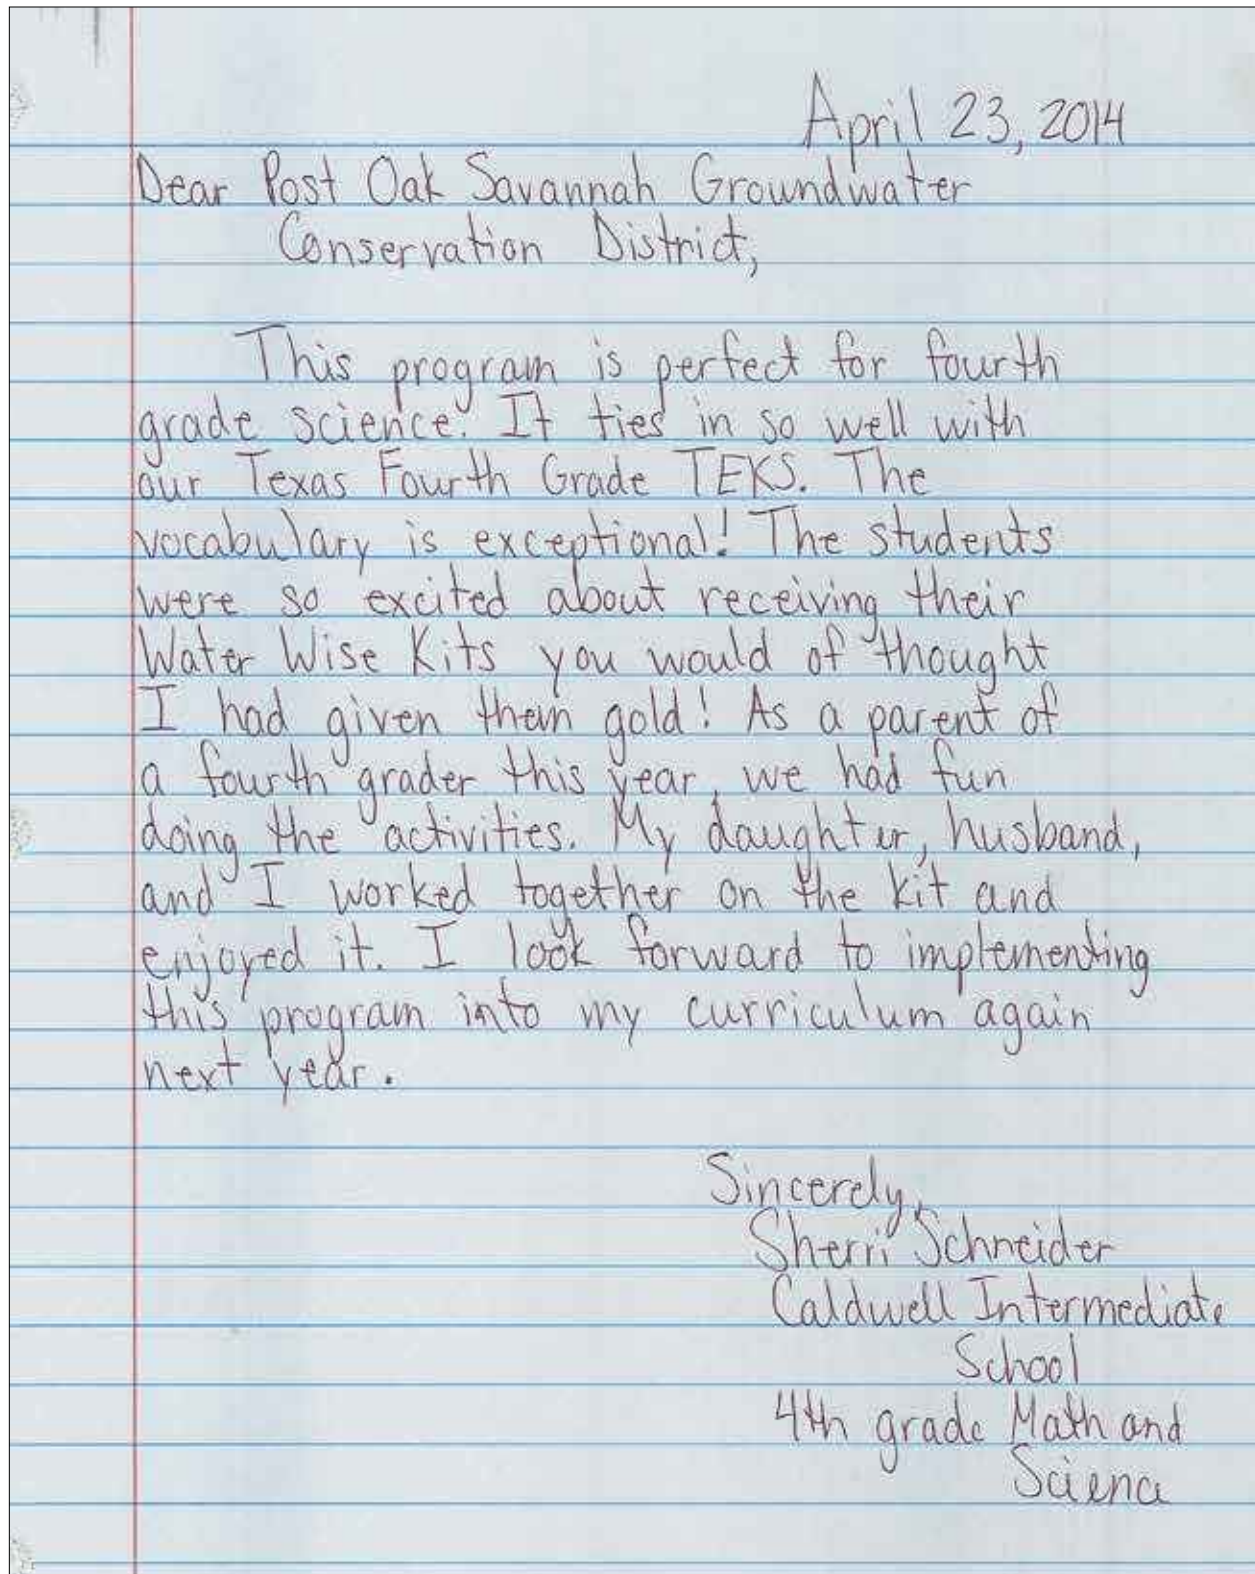 April 23, 2014
Dear Post Oak Savannah Groundwater
Conservation District,
This program is perfect for fourth
grade science. It ties in so well with
our Texas Fourth Grade TEKS. The
vocabulary is exceptional! The students
were so excited about receiving their
Water Wise Kits you would of thought
I had given them gold! As a parent of
a fourth grader this year, we had fun
doing the activities. My daughter, husband,
and I worked together on the kit and
enjoyed it. I look forward to implementing
this program into my curriculum again
next year.
Sincerely,
Sherri Schneider
Caldwell Intermediate
School
4th grade Math and
Science